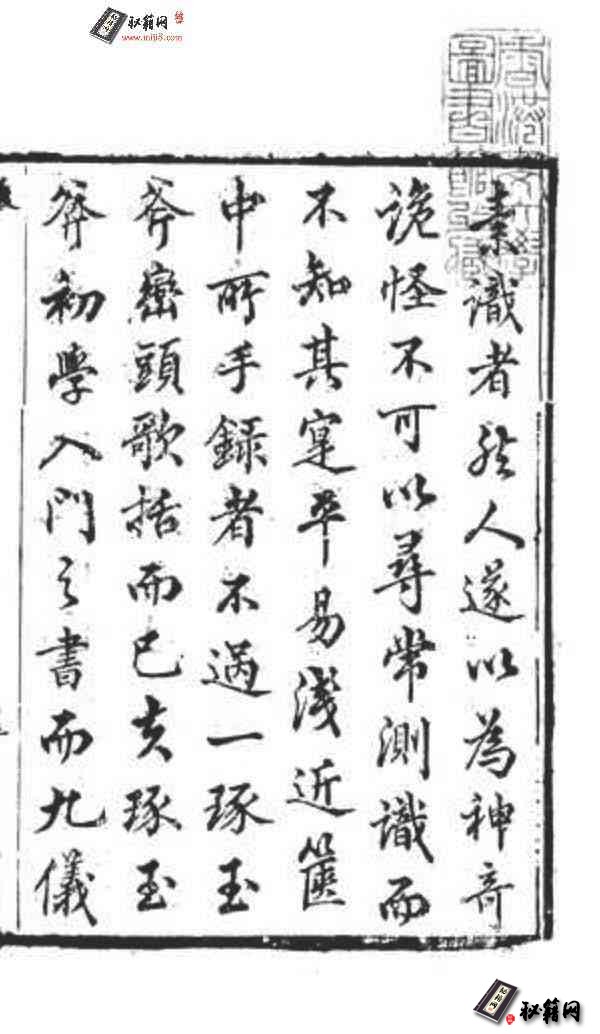 秘籍网
www.miji8.com
素識者人遂以為神奇
詭怪不可以尋常測識而
不知其寔平易淺近篋
中所手錄者不過一琢玉
斧巒頭歌括而已夫琢玉
斧初學入門之書而九儀
秘籍网